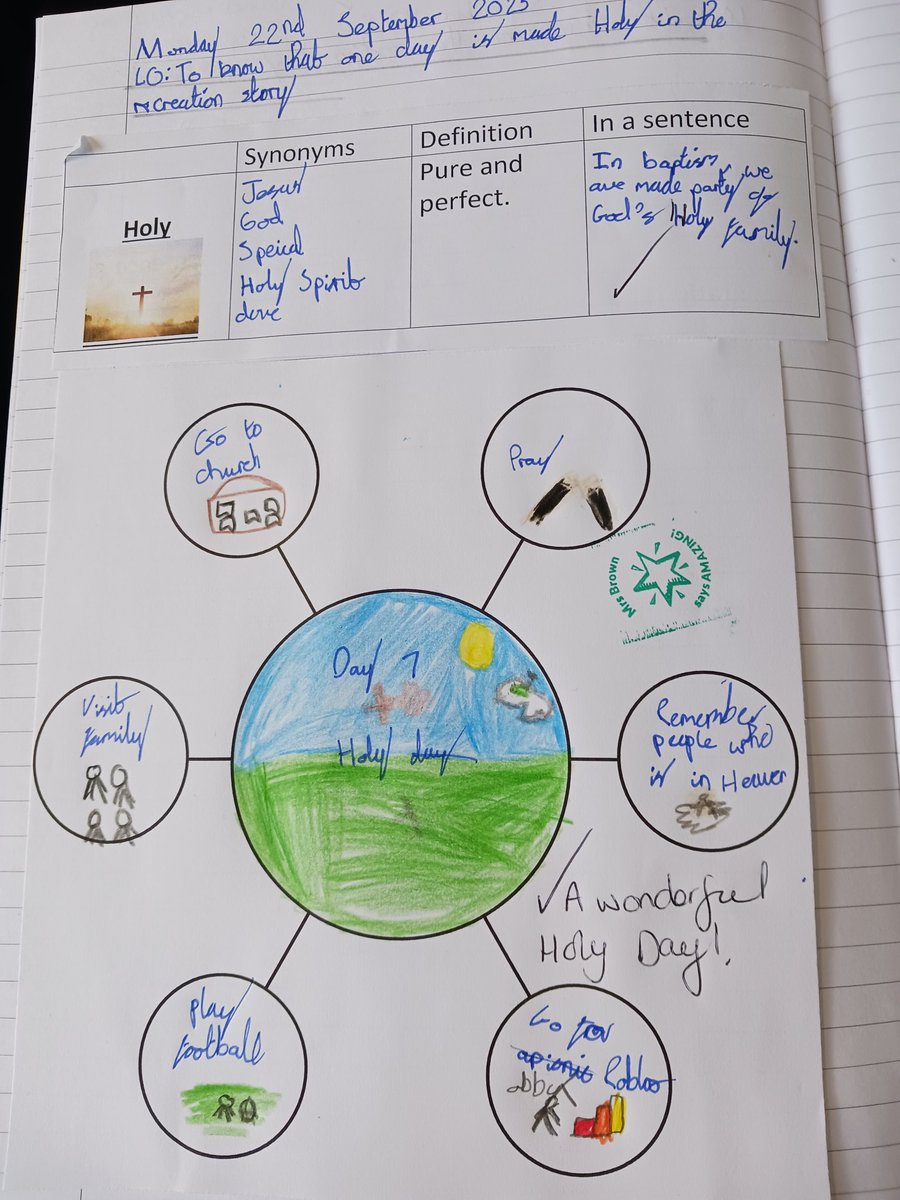 Monday 22nd September 2025
LO: To know that one day is made Holy in the
creation story
Synonyms
Definition
In a sentence
Holy
Jesus
God
Speical
Holy Spirit
dove
Pure and
perfect.
In baptism, we
are made party of
God's Holy family.
Go to
church
Pray
Mrs Brown
says AMAZING!
Day 7
Holy day
Visit
family
Remember
people who
is in Heaven
A wonderful
Holy Day!
Play
football
Go for
apicnic Roblox
obby